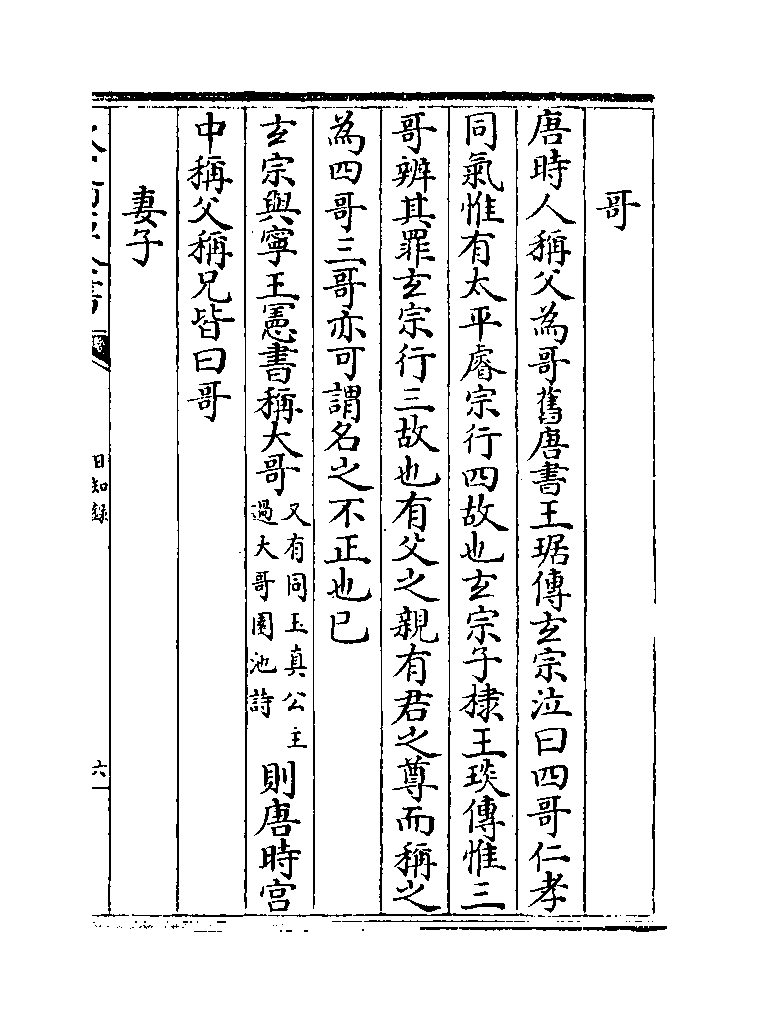 哥
唐時人稱父為哥舊唐書王琚傳玄宗泣曰四哥仁孝
同氣惟有太平睿宗行四故也玄宗子棣王琰傳惟三
哥辨其罪玄宗行三故也有父之親有君之尊而稱之
為四哥三哥亦可謂名之不正也已
玄宗與寧王憲書稱大哥又有同玉真公主過大哥園池詩則唐時宮
中稱父稱兄皆曰哥
妻子
日知錄
六